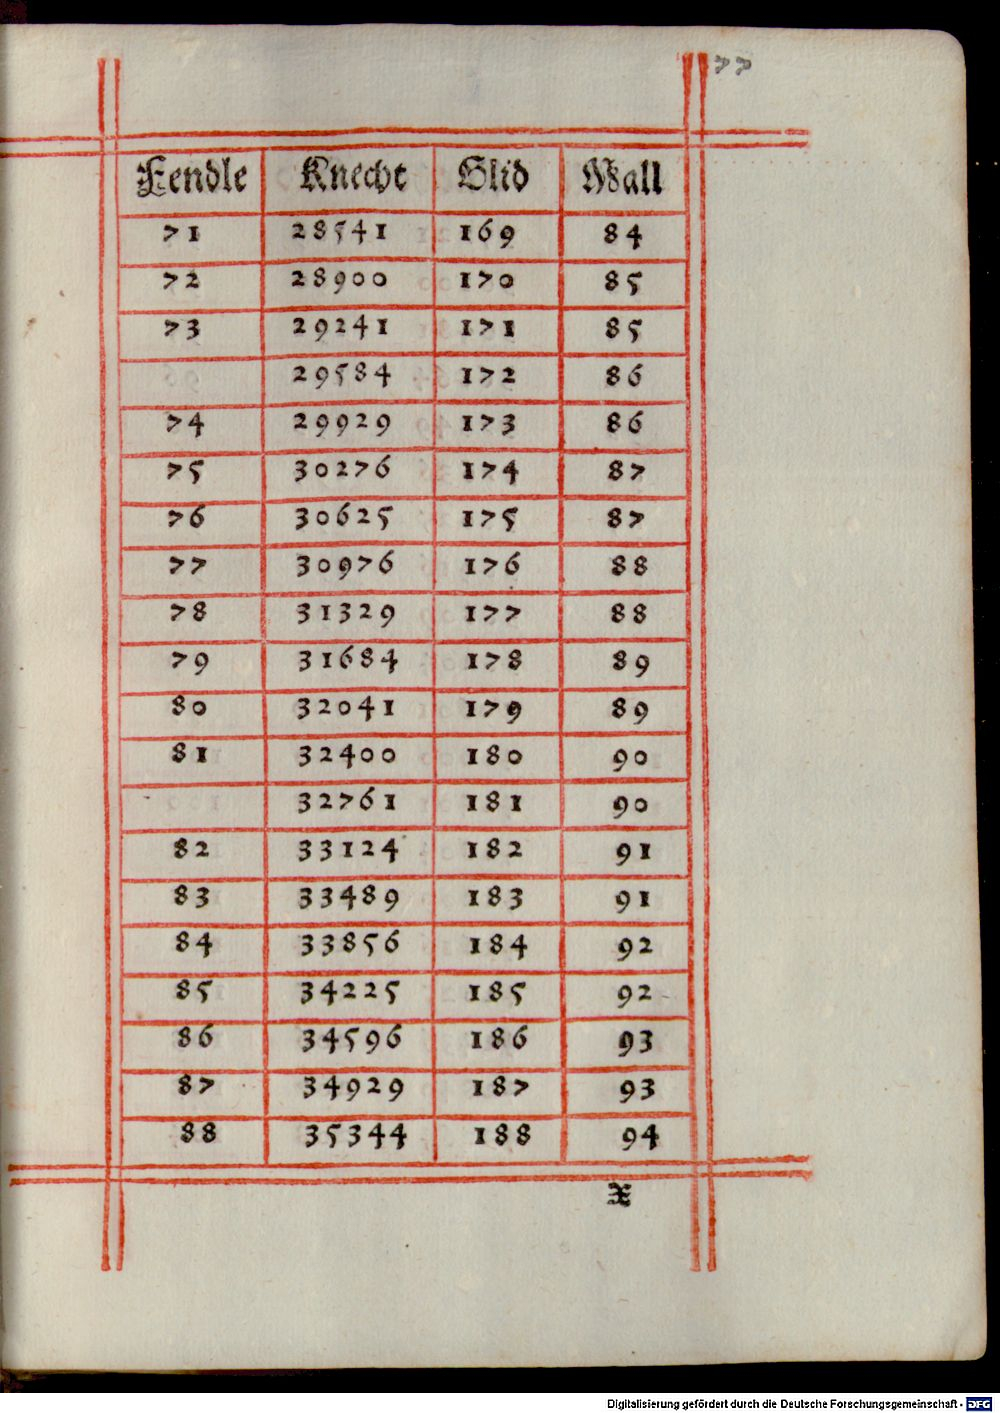 77
Fendle Knecht Glid Wall
71 28541 169 84
72 28900 170 85
73 29241 171 85
29584 172 86
74 29929 173 86
75 30276 174 87
76 30625 175 87
77 30976 176 88
78 31329 177 88
79 31684 178 89
80 32041 179 89
81 32400 180 90
32761 181 90
82 33124 182 91
83 33489 183 91
84 33856 184 92
85 34225 185 92
86 34596 186 93
87 34929 187 93
88 35344 188 94
X
Digitalisierung gefördert durch die Deutsche Forschungsgemeinschaft - DFG